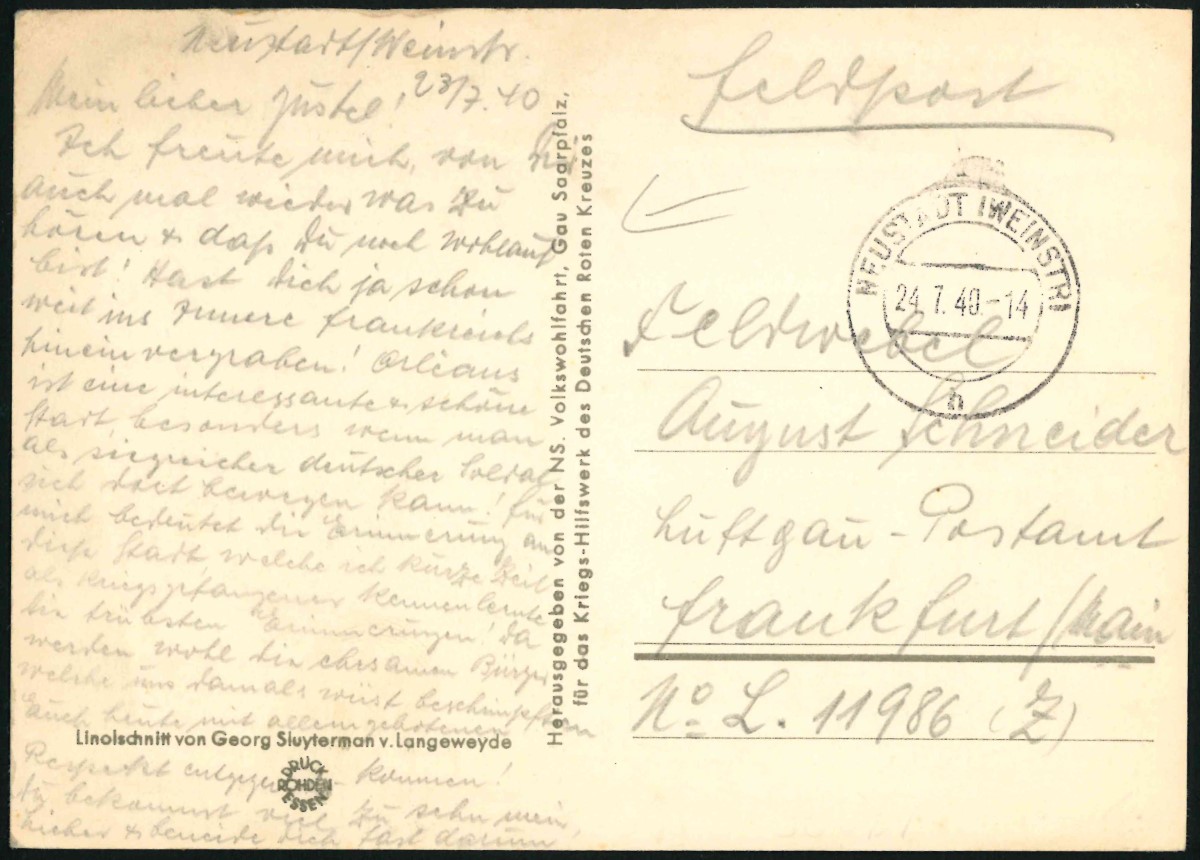 Neustadt/Weinstr.
23/7.40
Mein lieber Justel!
Ich freute mich, von Dir
auch mal wieder was zu
hören & daß Du noch wohlauf
bist! Hast Dich ja schon
weit ins Innere Frankreichs
hinein vergraben! Orléans
ist eine interessante & schöne
Stadt, besonders wenn man
als siegreicher deutscher Soldat
sich dort bewegen kann! Für
mich bedeutet die Erinnerung an
diese Stadt, welche ich kurze Zeit
als Kriegsgefangener kennen lernte
die trübsten Erinnerungen! Da
werden wohl die ehrsamen Bürger
welche uns damals wüst beschimpften
auch heute mit allem gebotenen
Respekt entgegen kommen!
Du bekommst viel zu sehn mein
Lieber & beneide Dich fast darum
Linolschnitt von Georg Sluyterman v. Langeweyde
DRUCK
ROHDEN
ESSEN
Herausgegeben von der NS. Volkswohlfahrt, Gau Saarpfalz,
für das Kriegs-Hilfswerk des Deutschen Roten Kreuzes
Feldpost
NEUSTADT (WEINSTR)
24.7.40.-14
n
Feldwebel
August Schneider
Luftgau-Postamt
Frankfurt/Main
No L. 11986 (Z)